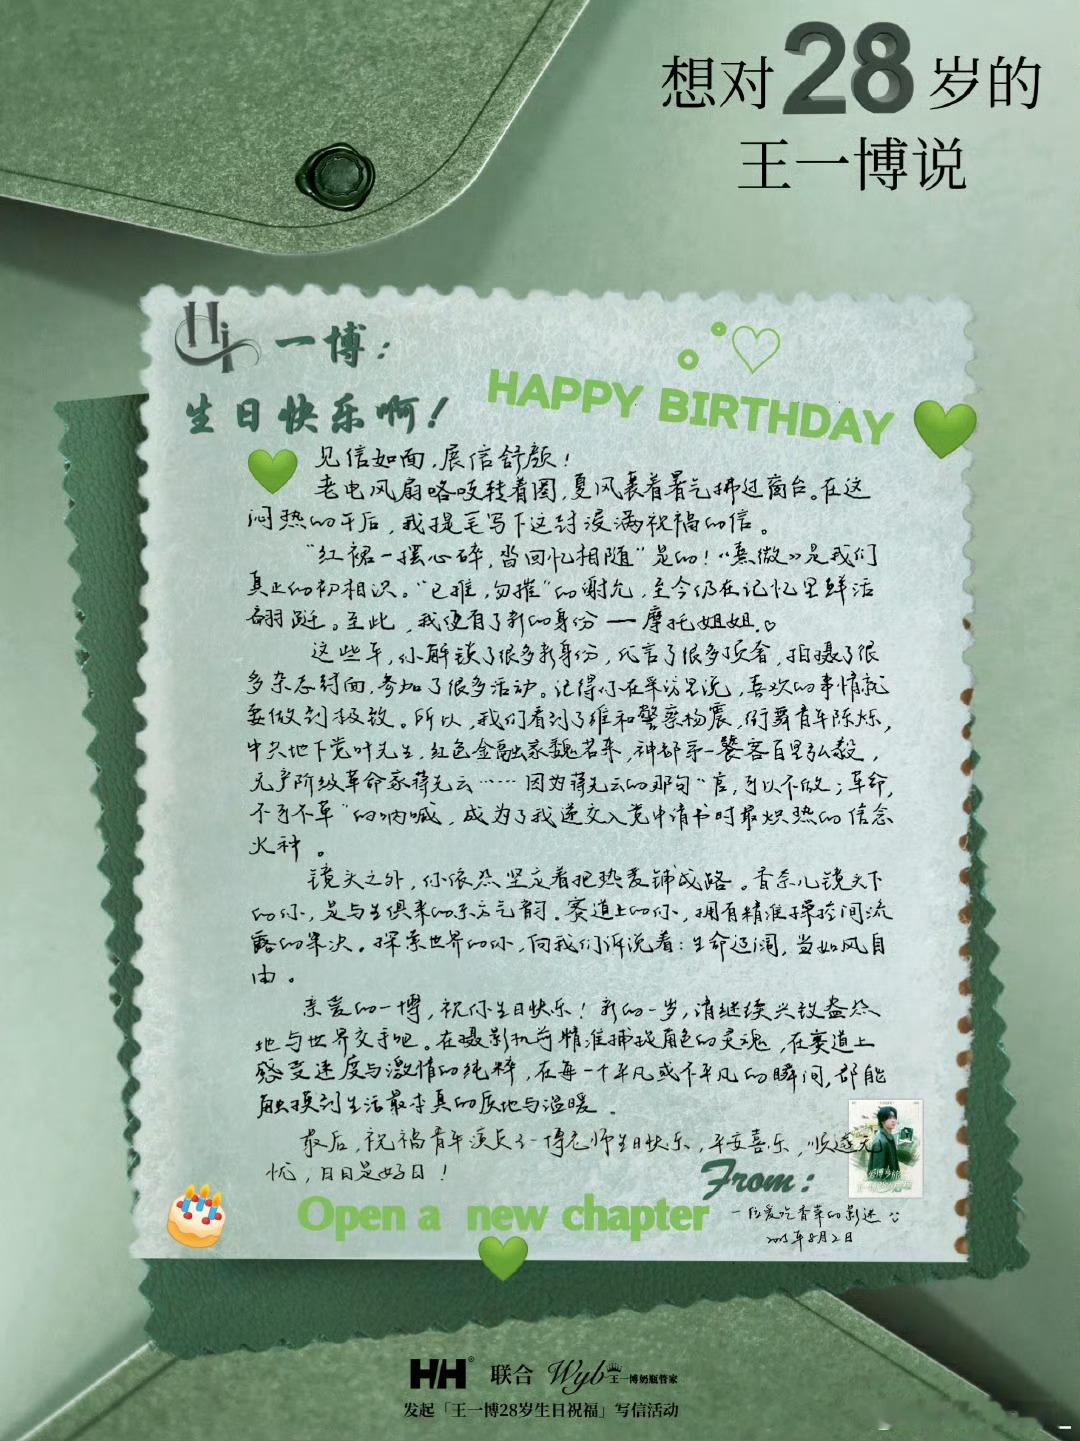 想对28岁的
王一博说
Hi 一博：
生日快乐啊！
HAPPY BIRTHDAY
见信如面，展信舒颜！
老电风扇咯吱转着圈，夏风裹着暑气拂过窗台。在这
闷热的午后，我提笔写下这封浸满祝福的信。
“红裙一摆心碎，沓回忆相随”是的！《熹微》是我们
真正的初相识。“已雅，勿摧”的谢允，至今仍在记忆里鲜活
翩跹。至此，我便有了新的身份——摩托姐姐。♡
这些年，你解锁了很多新身份，代言了很多顶奢，拍摄了很
多杂志封面，参加了很多活动。记得你在采访里说，喜欢的事情就
要做到极致。所以，我们看到了维和警察杨震，街舞青年陈烁，
中共地下党叶先生，红色金融家魏若来，神都第一饕客百里弘毅，
无产阶级革命家蒋先云……因为蒋先云的那句“官，可以不做；革命，
不可不革”的呐喊，成为了我递交入党申请书时最炽热的信念
火种。
镜头之外，你依然坚定着把热爱铺成路。香奈儿镜头下
的你，是与生俱来的东方气韵。赛道上的你，拥有精准操控间流
露的果决。探索世界的你，向我们诉说着：生命辽阔，当如风自
由。
亲爱的一博，祝你生日快乐！新的一岁，请继续兴致盎然
地与世界交手吧。在摄影机前精准捕捉角色的灵魂，在赛道上
感受速度与激情的纯粹，在每一个平凡或不平凡的瞬间，都能
触摸到生活最本真的质地与温暖。
最后，祝福青年演员王一博老师生日快乐，平安喜乐，顺遂无
忧，日日是好日！
From：
Open a new chapter
一位爱吃香草的影迷
2025年8月2日
HH® 联合 Wyb 王一博奶瓶管家
发起「王一博28岁生日祝福」写信活动